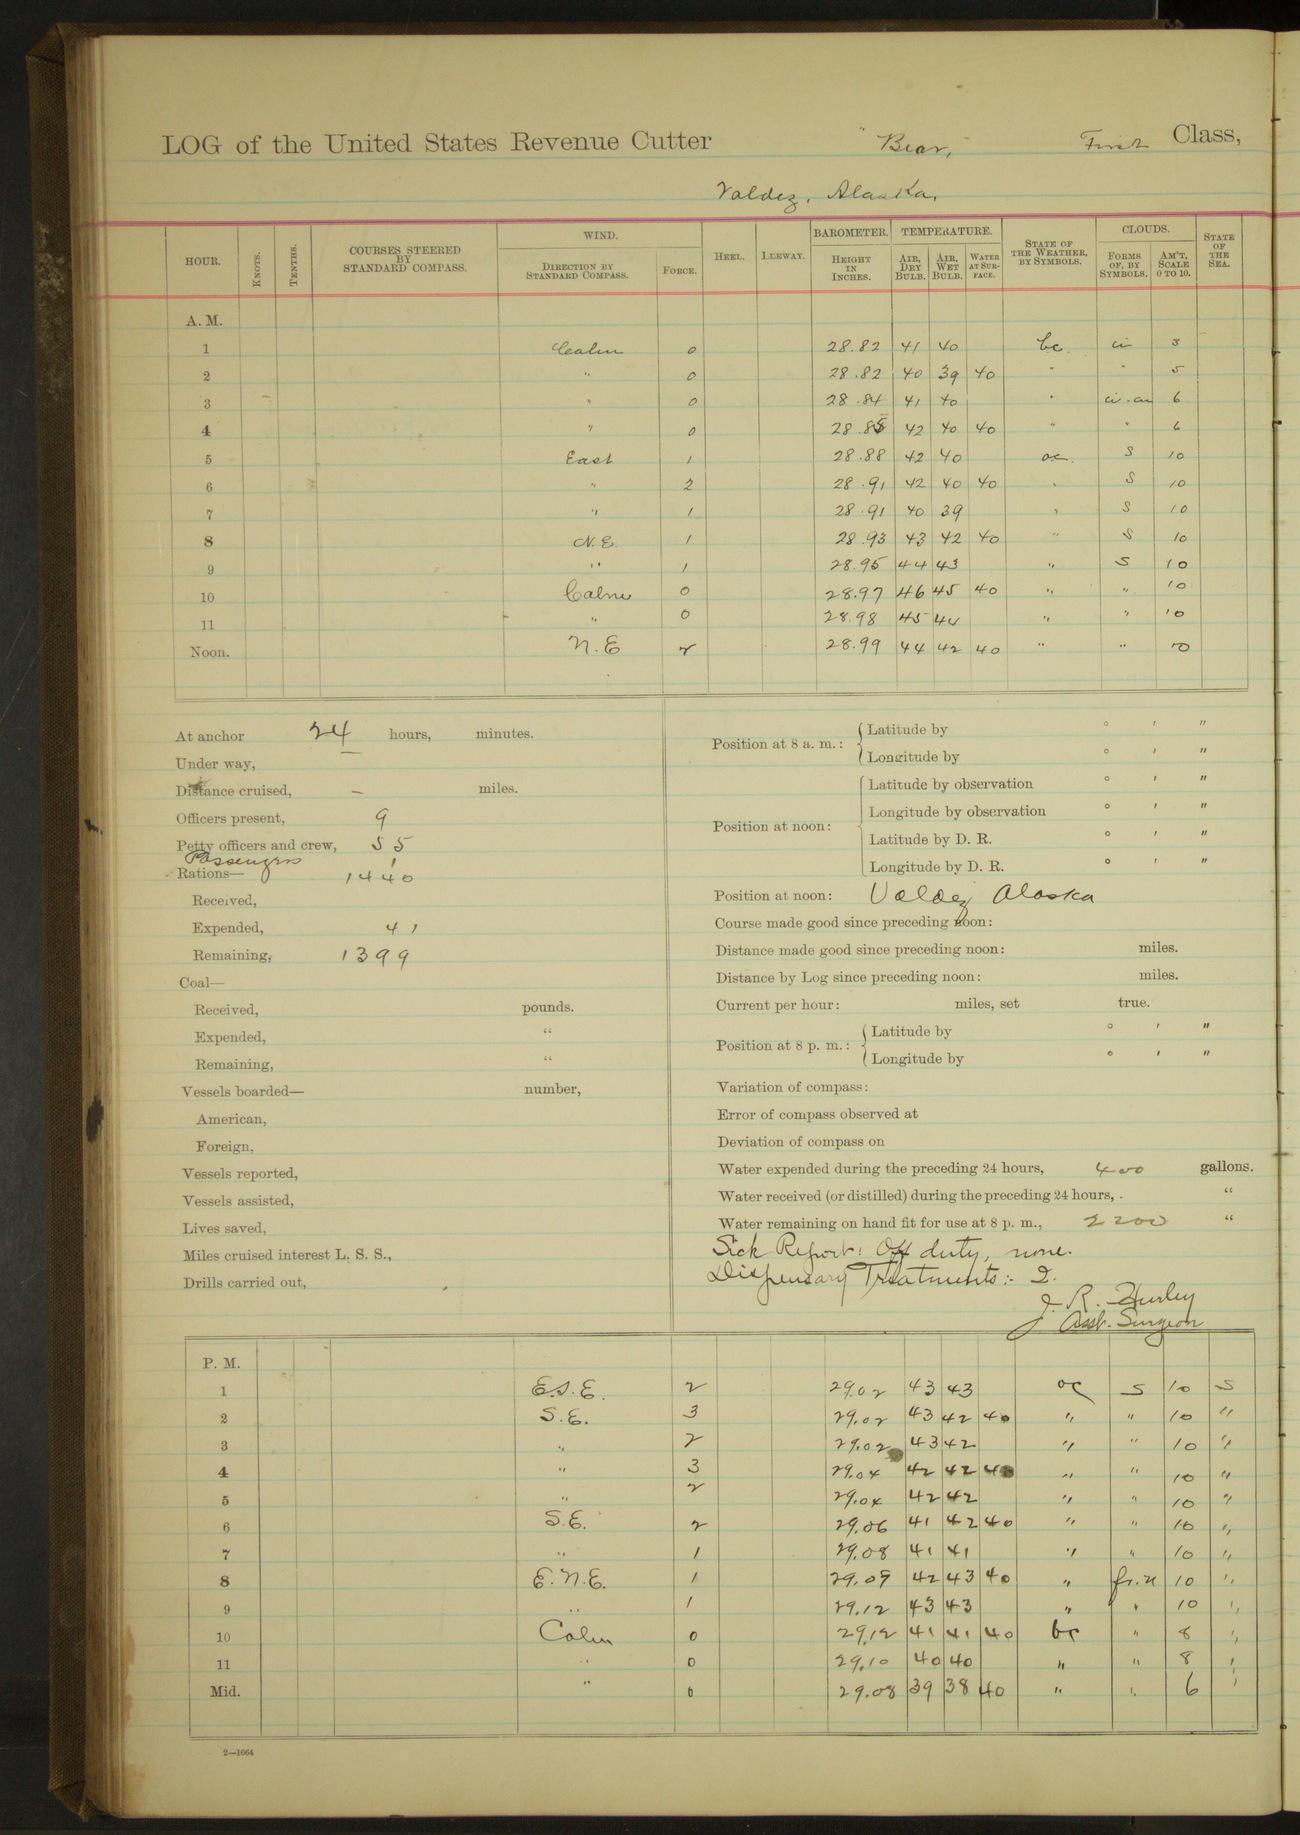 LOG of the United States Revenue Cutter "Bear," First Class,
Valdez, Alaska.
HOUR. KNOTS. TENTHS. COURSES STEERED BY STANDARD COMPASS. WIND. DIRECTION BY STANDARD COMPASS. FORCE. HEEL. LEEWAY. BAROMETER. HEIGHT IN INCHES. TEMPERATURE. AIR, DRY BULB. AIR, WET BULB. WATER AT SURFACE. STATE OF THE WEATHER, BY SYMBOLS. CLOUDS. FORMS OF, BY SYMBOLS. AM'T, SCALE 0 TO 10. STATE OF THE SEA.
A. M.
1 Calm 0 28.82 41 40 bc ci 3
2 " 0 28.82 40 39 40 " " 5
3 " 0 28.84 41 40 " 6
4 " 0 28.85 42 40 40 " " 6
5 East 1 28.88 42 40 oc. S 10
6 " 2 28.91 42 40 40 " S 10
7 " 1 28.91 40 39 " S 10
8 N.E. 1 28.93 43 42 40 " S 10
9 " 1 28.95 44 43 " S 10
10 Calm 0 28.97 46 45 40 " " 10
11 " 0 28.98 45 44 " " 10
Noon. N.E 2 28.99 44 42 40 " " 10
At anchor 24 hours, minutes.
Under way,
Distance cruised, — miles.
Officers present, 9
Petty officers and crew, 55
Passengers 1
Rations— 1440
Received,
Expended, 41
Remaining, 1399
Coal—
Received, pounds.
Expended, "
Remaining, "
Vessels boarded— number,
American,
Foreign,
Vessels reported,
Vessels assisted,
Lives saved,
Miles cruised interest L. S. S.,
Drills carried out,
Position at 8 a. m.: Latitude by ° ' "
Longitude by ° ' "
Position at noon: Latitude by observation ° ' "
Longitude by observation ° ' "
Latitude by D. R. ° ' "
Longitude by D. R. ° ' "
Position at noon: Valdez Alaska
Course made good since preceding noon:
Distance made good since preceding noon: miles.
Distance by Log since preceding noon: miles.
Current per hour: miles, set true.
Position at 8 p. m.: Latitude by ° ' "
Longitude by ° ' "
Variation of compass:
Error of compass observed at
Deviation of compass on
Water expended during the preceding 24 hours, 400 gallons.
Water received (or distilled) during the preceding 24 hours, "
Water remaining on hand fit for use at 8 p. m., 2200 "
Sick Report: Off duty, none.
Dispensary Treatments:- 2.
J. R. Hurley
Asst. Surgeon
P. M.
1 E.S.E. 2 29.02 43 43 oc S 10 S
2 S.E. 3 29.02 43 42 40 " " 10 "
3 " 2 29.02 43 42 " " 10 "
4 " 3 29.04 42 42 40 " " 10 "
5 " 2 29.04 42 42 " " 10 "
6 S.E. 2 29.06 41 42 40 " " 10 "
7 " 1 29.08 41 41 " " 10 "
8 E.N.E. 1 29.09 42 43 40 " 10 "
9 " 1 29.12 43 43 " " 10 "
10 Calm 0 29.12 41 41 40 bc " 8 "
11 " 0 29.10 40 40 " " 8 "
Mid. " 0 29.08 39 38 40 " " 6 "
2—1664